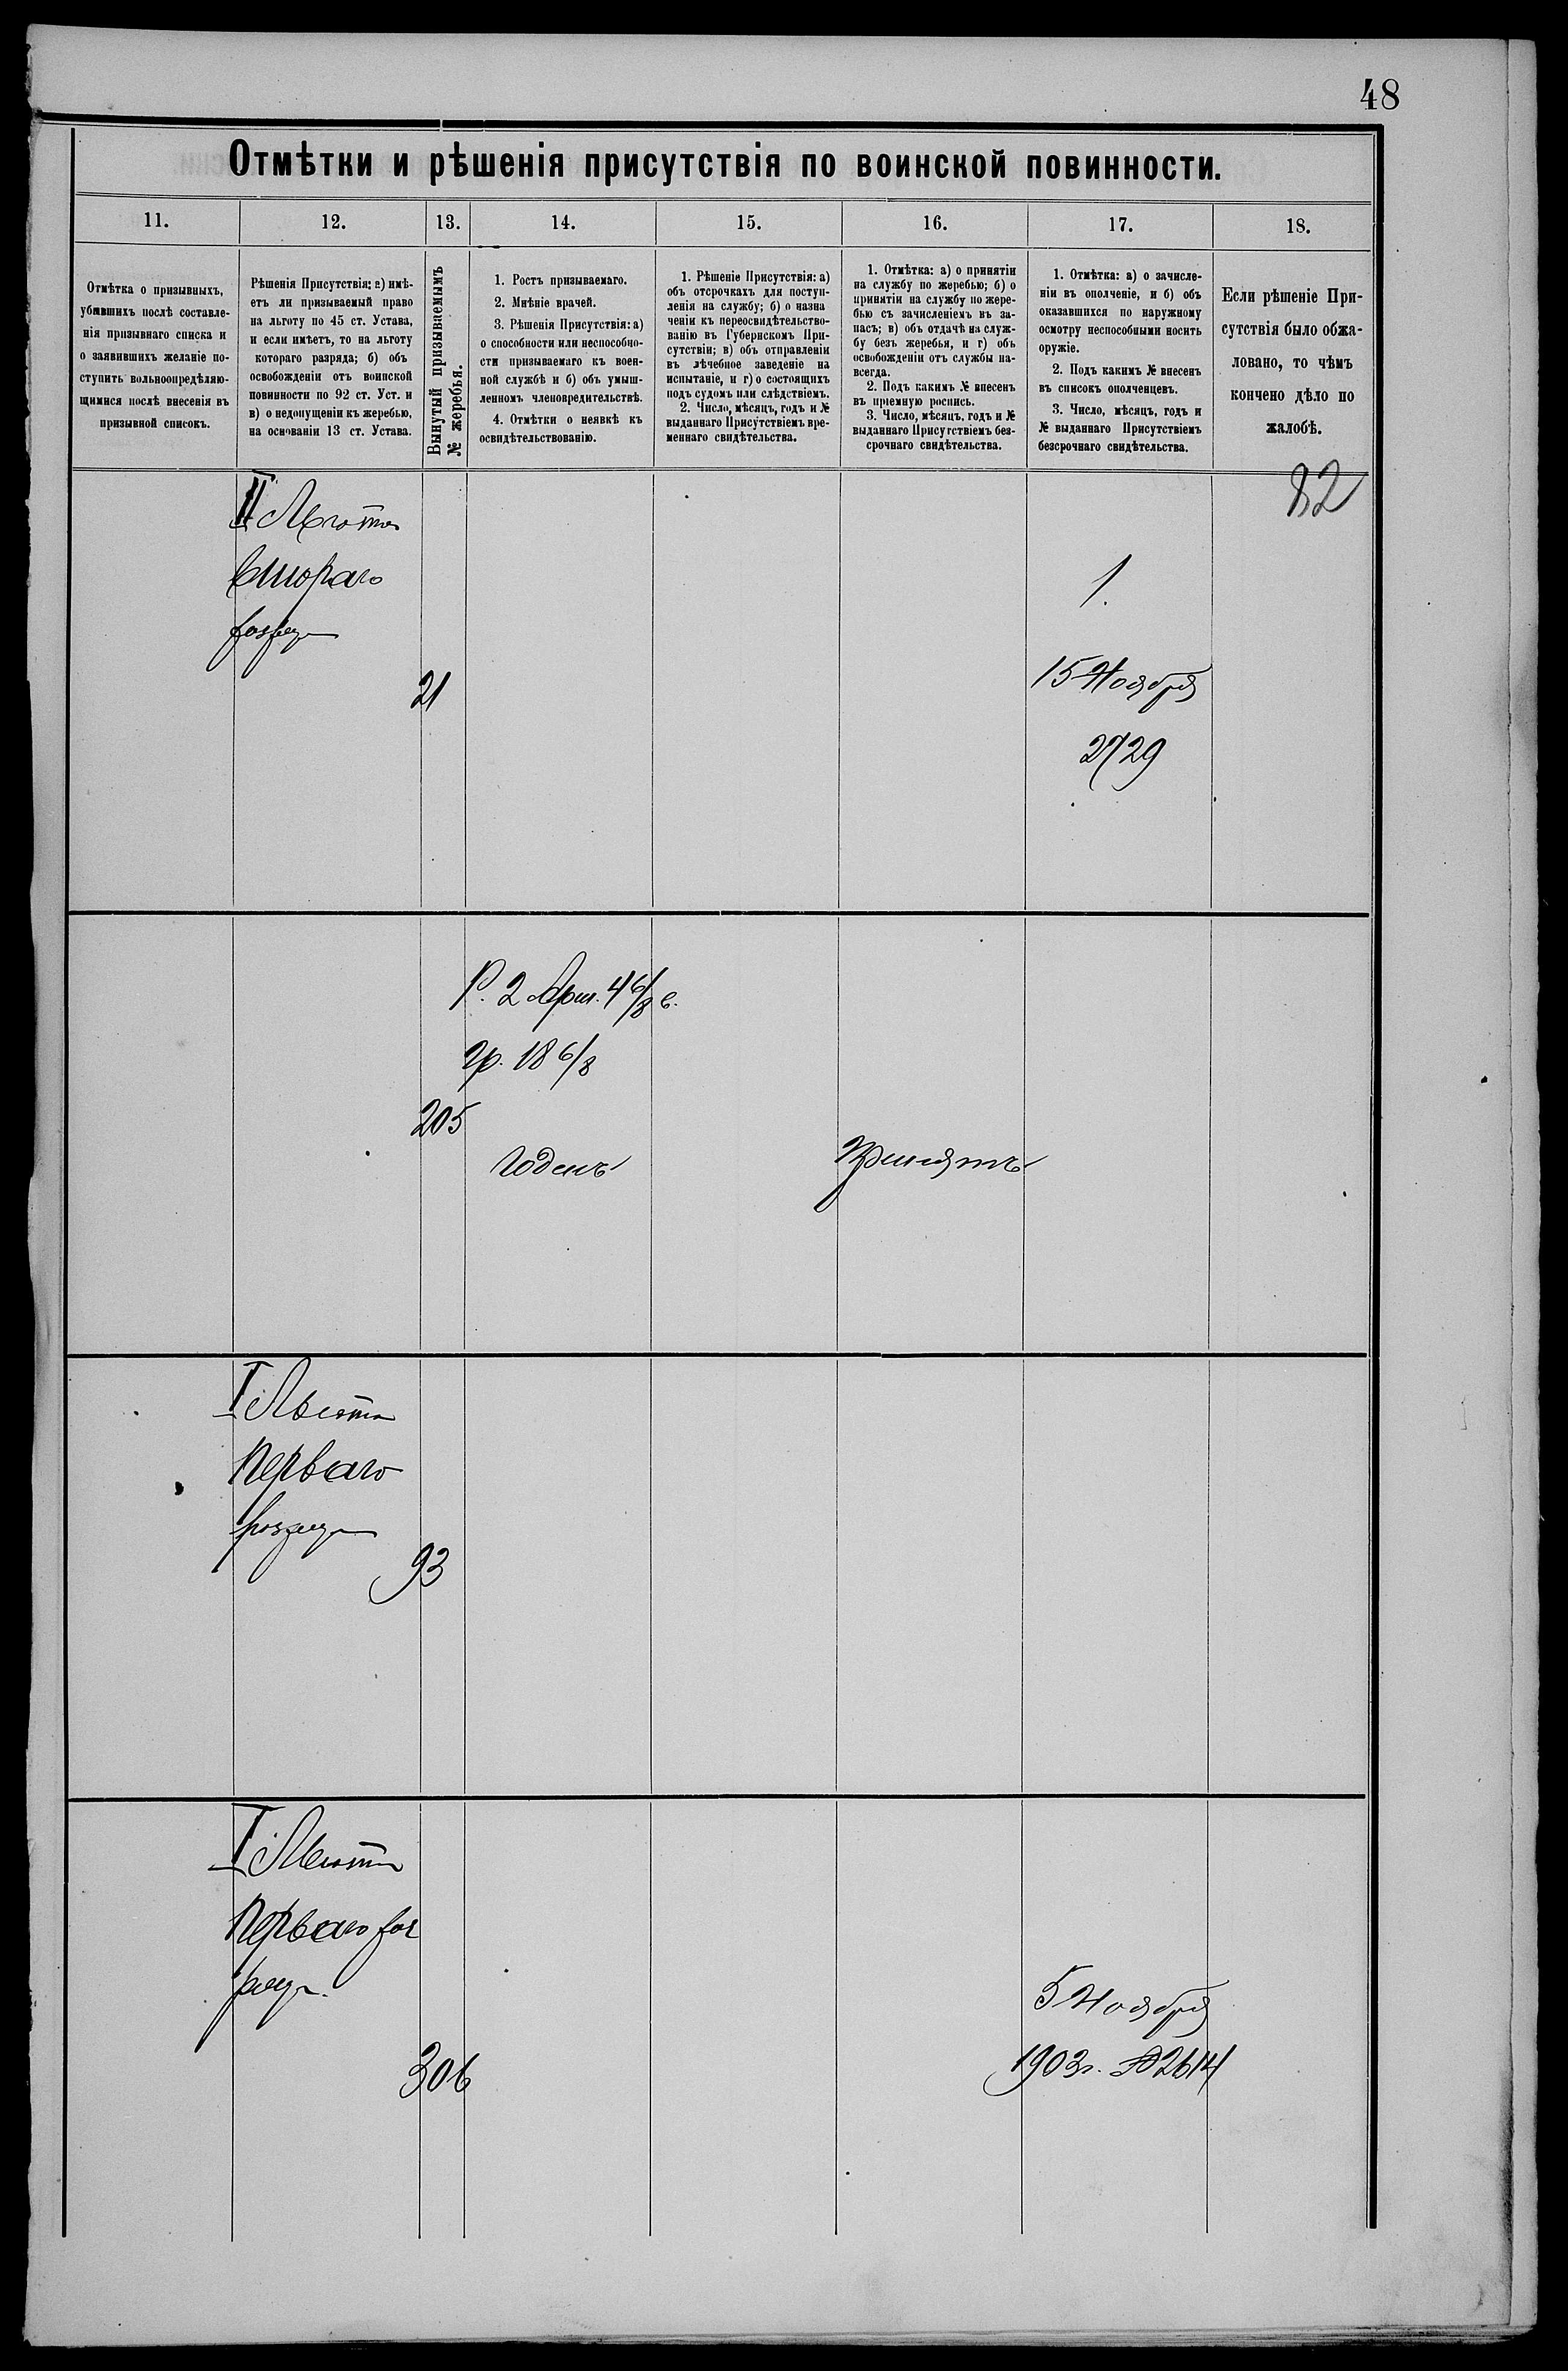 48
Отмѣтки и рѣшенія присутствія по воинской повинности.
11.
12.
13.
14.
15.
16.
17.
18.
Отмѣтка о призывныхъ,
убывшихъ послѣ составле-
нія призывнаго списка и
о заявившихъ желаніе по-
ступить вольноопредѣляю-
щимися послѣ внесенія въ
призывной списокъ.
Рѣшенія Присутствія: а) имѣ-
етъ ли призываемый право
на льготу по 45 ст. Устава,
и если имѣетъ, то на льготу
котораго разряда; б) объ
освобожденіи отъ воинской
повинности по 92 ст. Уст. и
в) о недопущеніи къ жеребью,
на основаніи 13 ст. Устава.
Вынутый призываемымъ
№ жеребья.
1. Ростъ призываемаго.
2. Мнѣніе врачей.
3. Рѣшенія Присутствія: а)
о способности или неспособно-
сти призываемаго къ воен-
ной службѣ и б) объ умыш-
ленномъ членовредительствѣ.
4. Отмѣтки о неявкѣ къ
освидѣтельствованію.
1. Рѣшеніе Присутствія: а)
объ отсрочкахъ для поступ-
ленія на службу; б) о назна
ченіи къ переосвидѣтельство-
ванію въ Губернскомъ При-
сутствіи; в) объ отправленіи
въ лѣчебное заведеніе на
испытаніе, и г) о состоящихъ
подъ судомъ или слѣдствіемъ.
2. Число, мѣсяцъ, годъ и №
выданнаго Присутствіемъ вре-
меннаго свидѣтельства.
1. Отмѣтка: а) о принятіи
на службу по жеребью; б) о
принятіи на службу по жере-
бью съ зачисленіемъ въ за-
пасъ; в) объ отдачѣ на служ-
бу безъ жеребья, и г) объ
освобожденіи отъ службы на-
всегда.
2. Подъ какимъ № внесенъ
въ приемную роспись.
3. Число, мѣсяцъ, годъ и №
выданнаго Присутствіемъ без-
срочнаго свидѣтельства.
1. Отмѣтка: а) о зачисле-
ніи въ ополченіе, и б) объ
оказавшихся по наружному
осмотру неспособными носить
оружіе.
2. Подъ какимъ № внесенъ
въ списокъ ополченцевъ.
3. Число, мѣсяцъ, годъ и
№ выданнаго Присутствіемъ
безсрочнаго свидѣтельства.
Если рѣшеніе При-
сутствія было обжа-
ловано, то чѣмъ
кончено дѣло по
жалобѣ.
82
II Льгота
втораго
разряда
21
1.
15 Ноября
2729
Р. 2 Арш. 4 6/8 в.
гр. 18 6/8
205
годенъ
Принятъ
I Льгота
перваго
разряда
93
I Льгота
перваго раз
ряда.
306
5 Ноября
1903 г. № 2614